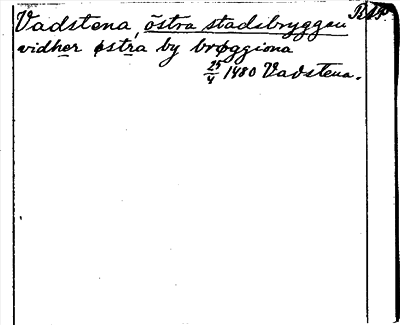 Vadstena, östra stadsbryggan RAP
vidher østra by brøggiona
25/4 1480 Vadstena.